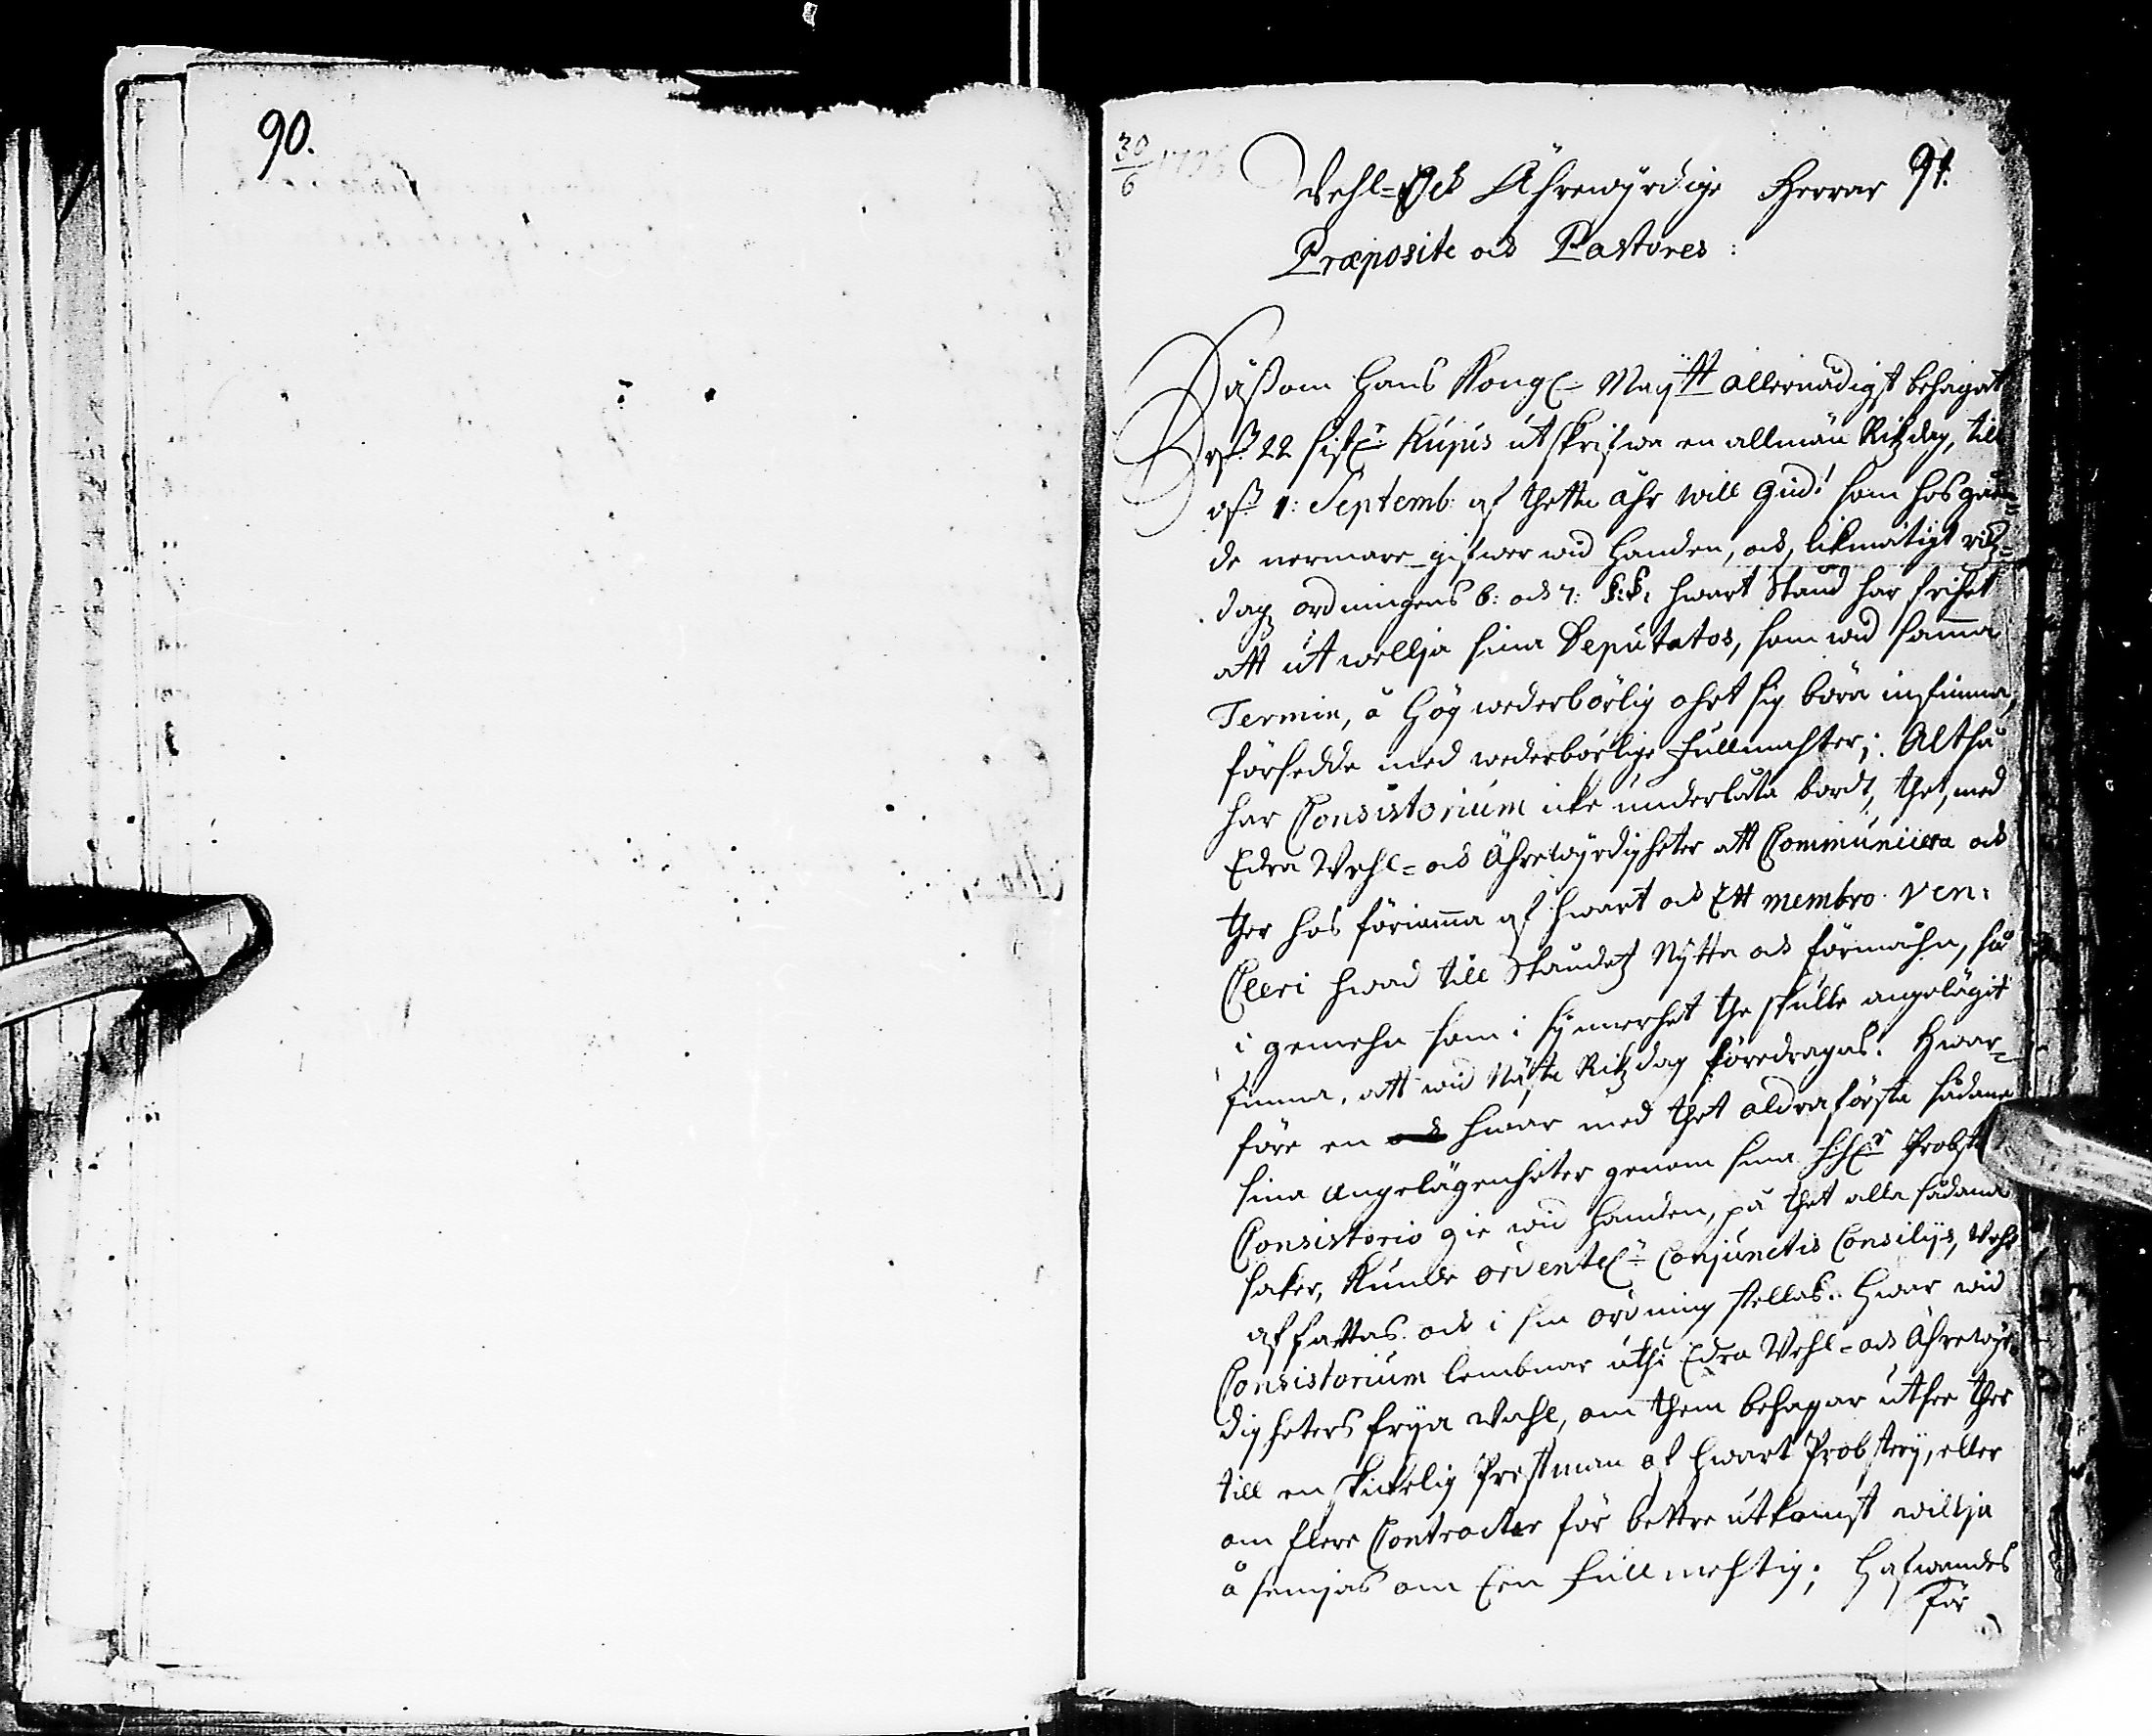 90.
30/6 1726
91.
Wehl- Och Ährewyrdige Herrar
Præposite och Pastores:
Såssom Hans Kongl. Maÿtt allernådigst behagat
d. 22 sistl. hujus utskrifwa en allmän Rikzdag, till
d. 1: Septemb: af thetta åhr will Gud! som hos gåen-
de nermare gifwer wid handen, och, likmätigt rikz-
dagz ordningens 6: och 7: §:§: hwart Stånd har frihet
att utwellja sina Deputatos, som wid samma
Termin, å Högwederbörlig ohrt sig böra infinna,
försedde med wederbörlige fullmachter; Altså
har Consistorium icke underlåta bordt, thet, med
Edra Wehl- och Ährewyrdigheter att Communicera och
ther hos förnimma af hwart och Ett membro Ven:
Cleri hwad tillStåndetz Nytta och förmåhn, så
i gemehn som i synnerhet the skulle angelägit
finna, att wid Nästa Rikzdag föredragas. Hwar-
före en och hwar med thet aldraförsta sådana
sina Angelägenheter genom sina H:Hr Probstar
Consistorio gie wid handen, på thet alla sådana
saker, kunde ordentel. Conjunctis Consilijs, Wehl
affattas och i sin ordning stellas. Hwar wid
Consistorium lembnar uthi Edra Wehl- och Ährewyr-
digheters frija Wahl, om them behagar uthsee ther
till en skickelig Prestman af hwart Probsterij, eller
om flere Contracter för bettre utkomst willja
å semjas om Een fullmechtig; Hafwandes
För